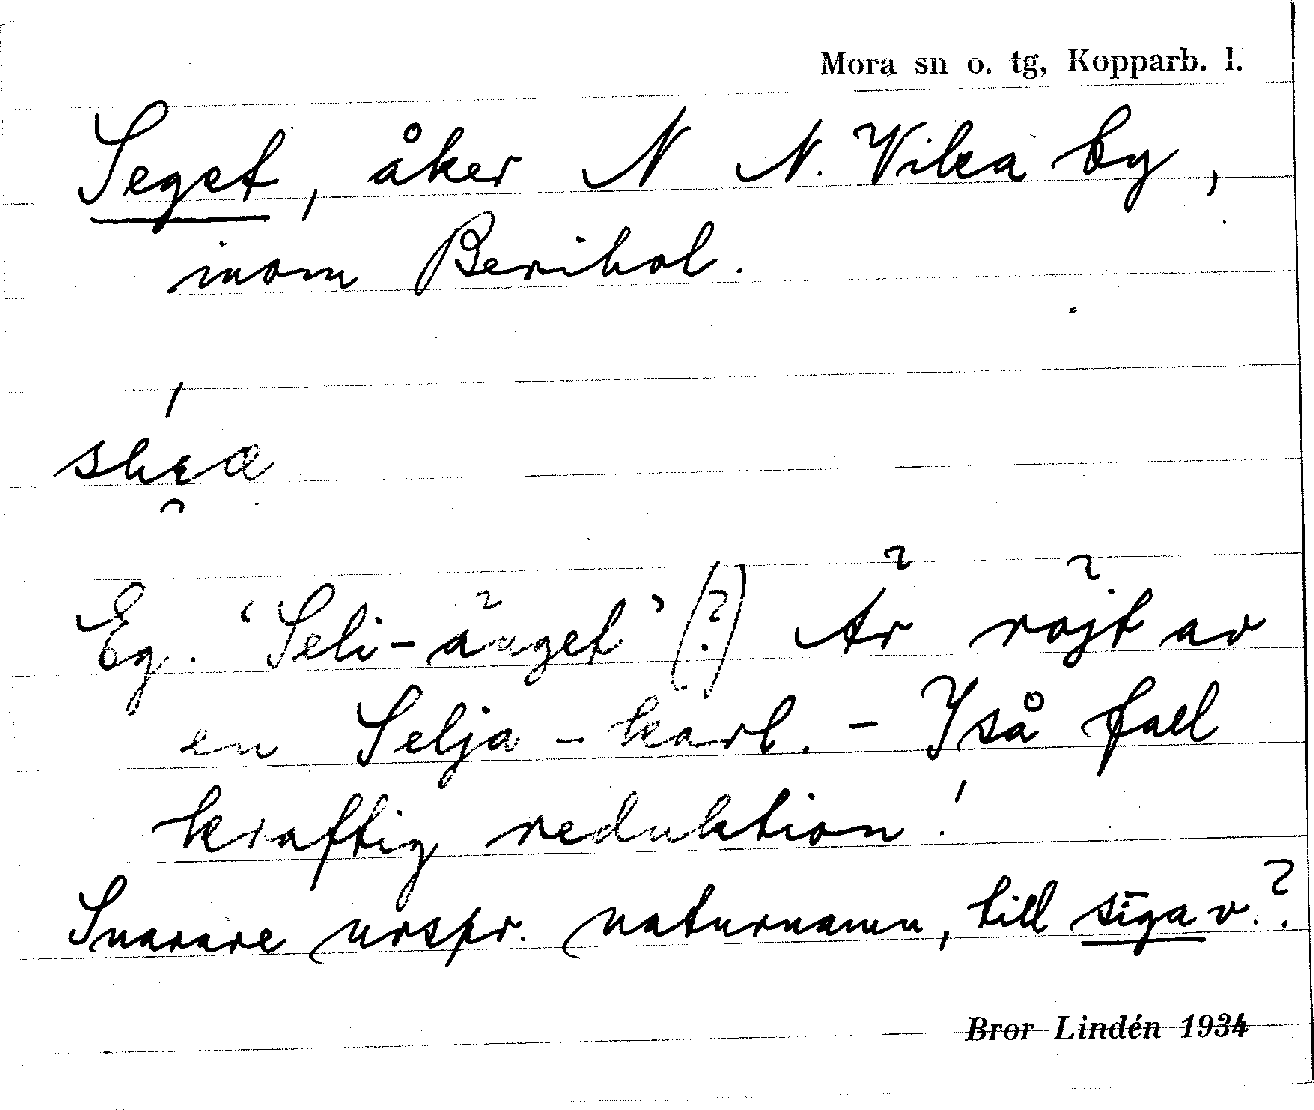 Mora sn o. tg, Kopparb. l.
Seget, åker N N. Vika by,
inom Berihol.
Eg. 'Seli-änget' (?) Är röjt av
en Selja-karl. - I så fall
kraftig reduktion!
Snarare urspr. naturnamn, till sīga v.?
Bror Lindén 1934